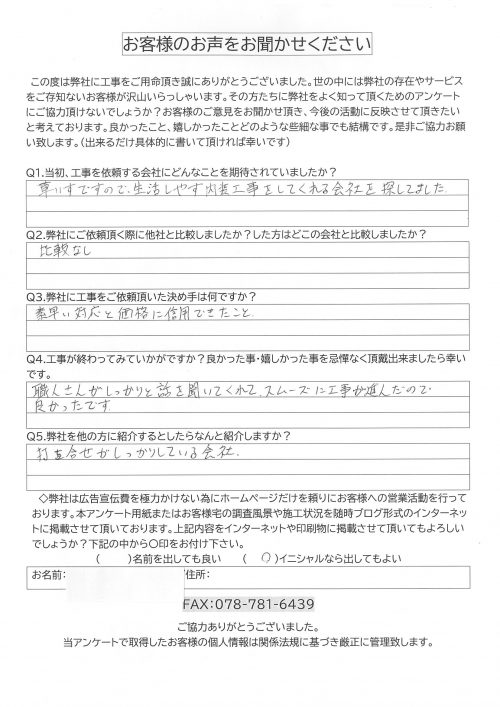 お客様のお声をお聞かせください
この度は弊社に工事をご用命頂き誠にありがとうございました。世の中には弊社の存在やサービス
をご存知ないお客様が沢山いらっしゃいます。その方たちに弊社をよく知って頂くためのアンケート
にご協力頂けないでしょうか？お客様のご意見をお聞かせ頂き、今後の活動に反映させて頂きたい
と考えております。良かったこと、嬉しかったことどのような些細な事でも結構です。是非ご協力お願
い致します。（出来るだけ具体的に書いて頂ければ幸いです）
Q1.当初、工事を依頼する会社にどんなことを期待されていましたか？
車いすですので、生活しやす内装工事をしてくれる会社を探してました
Q2.弊社にご依頼頂く際に他社と比較しましたか？した方はどこの会社と比較しましたか？
比較なし
Q3.弊社に工事をご依頼頂いた決め手は何ですか？
素早い対応と価格に信用できたこと.
Q4.工事が終わってみていかがですか？良かった事・嬉しかった事を忌憚なく頂戴出来ましたら幸い
です。
職人さんがしっかりと話を聞いてくれて、スムーズに工事が進んだので
良かったです.
Q5.弊社を他の方に紹介するとしたらなんと紹介しますか？
打合せがしっかりしている会社.
◇弊社は広告宣伝費を極力かけない為にホームページだけを頼りにお客様への営業活動を行って
おります。本アンケート用紙またはお客様宅の調査風景や施工状況を随時ブログ形式のインターネッ
トに掲載させて頂いております。上記内容をインターネットや印刷物に掲載させて頂いてもよろしい
でしょうか？下記の中から〇印をお付け下さい。
（　　）名前を出しても良い　（　○　）イニシャルなら出してもよい
お名前:　　住所:
FAX:078-781-6439
ご協力ありがとうございました。
当アンケートで取得したお客様の個人情報は関係法規に基づき厳正に管理致します。